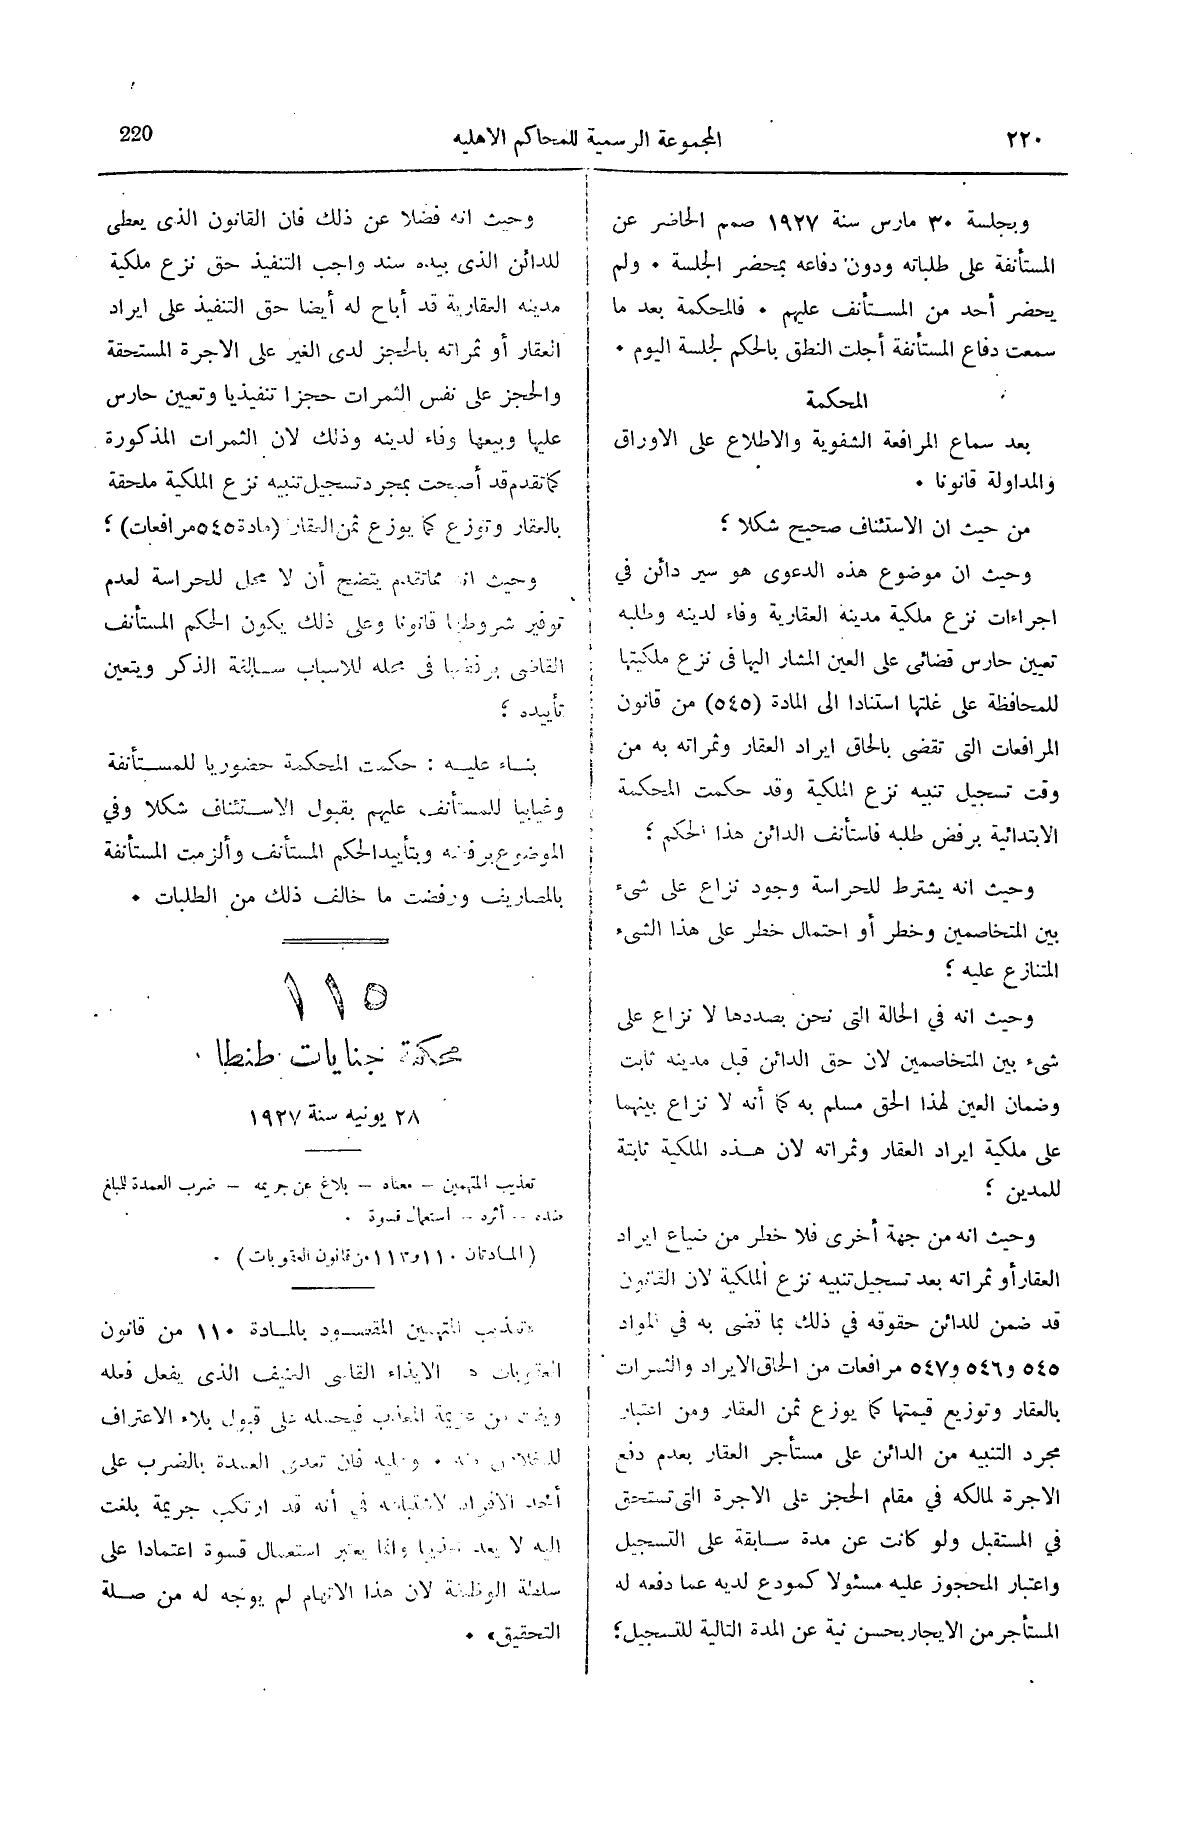 ٢٢٠
المجموعة الرسمية للمحاكم الاهليه
220
وبجلسة ٣٠ مارس سنة ١٩٢٧ صمم الحاضر عن
المستأنفة على طلباته ودون دفاعه بمحضر الجلسة • ولم
يحضر أحد من المستأنف عليهم • فالمحكمة بعد ما
سمعت دفاع المستأنفة أجلت النطق بالحكم لجلسة اليوم •
المحكمة
بعد سماع المرافعة الشفوية والاطلاع على الاوراق
والمداولة قانونا •
من حيث ان الاستئناف صحيح شكلا ؛
وحيث ان موضوع هذه الدعوى هو سير دائن في
اجراءات نزع ملكية مدينه العقارية وفاء لدينه وطلبه
تعيين حارس قضائى على العين المشار اليها فى نزع ملكيتها
للمحافظة على غلتها استنادا الى المادة (٥٤٥) من قانون
المرافعات التى تقضى بالحاق ايراد العقار وثمراته به من
وقت تسجيل تنبيه نزع الملكية وقد حكمت المحكمة
الابتدائية برفض طلبه فاستأنف الدائن هذا الحكم ؛
وحيث انه يشترط للحراسة وجود نزاع على شىء
بين المتخاصمين وخطر أو احتمال خطر على هذا الشىء
المتنازع عليه ؛
وحيث انه في الحالة التى نحن بصددها لا نزاع على
شىء بين المتخاصمين لان حق الدائن قبل مدينه ثابت
وضمان العين لهذا الحق مسلم به كما أنه لا نزاع بينهما
على ملكية ايراد العقار وثمراته لان هذه الملكية ثابتة
للمدين ؛
وحيث انه من جهة أخرى فلا خطر من ضياع ايراد
العقار أو ثمراته بعد تسجيل تنبيه نزع الملكية لان القانون
قد ضمن للدائن حقوقه في ذلك بما تقضى به في المواد
٥٤٥ و٥٤٦ و٥٤٧ مرافعات من الحاق الايراد والثمرات
بالعقار وتوزيع قيمتها كما يوزع ثمن العقار ومن اعتبار
مجرد التنبيه من الدائن على مستأجر العقار بعدم دفع
الاجرة لمالكه في مقام الحجز على الاجرة التى تستحق
في المستقبل ولو كانت عن مدة سابقة على التسجيل
واعتبار المحجوز عليه مسئولا كمودع لديه عما دفعه له
المستأجر من الايجار بحسن نية عن المدة التالية للتسجيل؛
وحيث انه فضلا عن ذلك فان القانون الذى يعطى
للدائن الذى بيده سند واجب التنفيذ حق نزع ملكية
مدينه العقارية قد أباح له أيضا حق التنفيذ على ايراد
العقار أو ثمراته بالحجز لدى الغير على الاجرة المستحقة
والحجز على نفس الثمرات حجزا تنفيذيا وتعيين حارس
عليها وبيعها وفاء لدينه وذلك لان الثمرات المذكورة
كما تقدم قد أصبحت بمجرد تسجيل تنبيه نزع الملكية ملحقة
بالعقار وتوزع كما يوزع ثمن العقار (مادة ٥٤٥ مرافعات) ؛
وحيث انه مما تقدم يتضح أن لا محل للحراسة لعدم
توفير شروطها قانونا وعلى ذلك يكون الحكم المستأنف
القاضى برفضها فى محله للاسباب سالفة الذكر ويتعين
تأييده ؛
بناء عليه : حكمت المحكمة حضوريا للمستأنفة
وغيابيا للمستأنف عليهم بقبول الاستئناف شكلا وفي
الموضوع برفضه وبتأييد الحكم المستأنف وألزمت المستأنفة
بالمصاريف ورفضت ما خالف ذلك من الطلبات •
١١٥
محكمة جنايات طنطا
٢٨ يونيه سنة ١٩٢٧
تعذيب المتهمين – معناه – بلاغ عن جريمه – ضرب العمدة للمبلغ
ضده – أثره – استعمال قسوة .
(المادتان ١١٠ و١١٣ من قانون العقوبات) .
«تعذيب المتهمين المقصود بالمادة ١١٠ من قانون
العقوبات هو الايذاء القاسى العنيف الذى يفعل فعله
ويفت من عزيمة المعذب فيحمله على قبول بلاء الاعتراف
للخلاص منه • وعليه فان تعدى العمدة بالضرب على
أحد الافراد لاشتباهه في أنه قد ارتكب جريمة بلغت
اليه لا يعد تعذيبا وانما يعتبر استعمال قسوة اعتمادا على
سلطة الوظيفة لان هذا الاتهام لم يوجه له من صلة
التحقيق» •